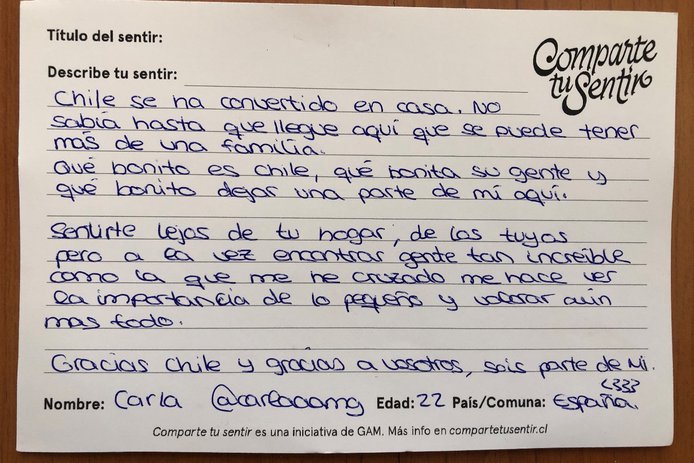 Título del sentir:
Comparte
tu Sentir
Describe tu sentir:
Chile se ha convertido en casa. No
sabía hasta que llegue aquí que se puede tener
más de una familia.
Qué bonito es Chile, qué bonita su gente y
qué bonito dejar una parte de mí aquí.
Sentirte lejos de tu hogar, de los tuyos
pero a la vez encontrar gente tan increíble
como la que me he cruzado me hace ver
la importancia de lo pequeño y valorar aún
mas todo.
Gracias Chile y gracias a vosotros, sois parte de mi.
<333
Nombre: Carla @carlaoomg Edad: 22 País/Comuna: España.
Comparte tu sentir es una iniciativa de GAM. Más info en compartetusentir.cl